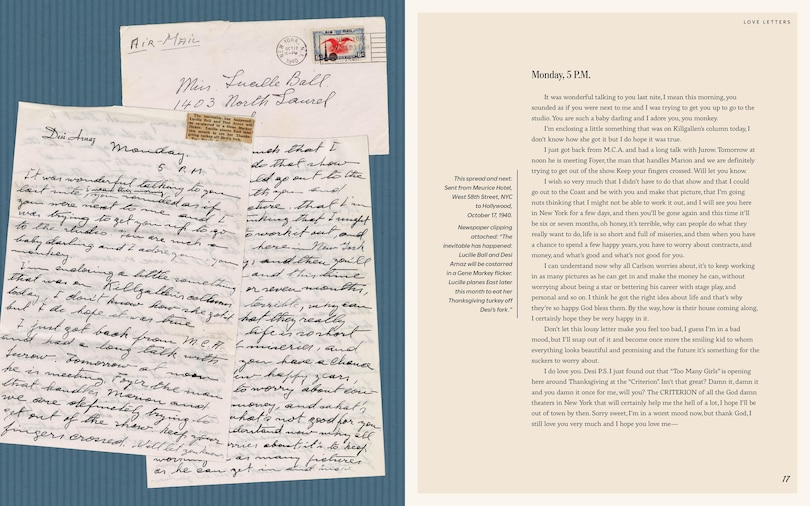 AIR-MAIL
NEW YORK, N.Y.
OCT 17
1940
Miss Lucille Ball
1403 North Laurel
The inevitable has happened:
Lucille Ball and Desi Arnaz will
be costarred in a Gene Markey
flicker. Lucille planes East later
this month to eat her Thanksgiving
turkey off Desi's fork.
Desi Arnaz
Monday.
5 P.M.
It was wonderful talking to you
last nite, I mean this morning,
you sounded as if
you were next to me and I
was trying to get you up to go
to the studio. You are such a
baby darling and I adore you, you
monkey.
I'm enclosing a little something
that was on Killgallen's column
today, I don't know how she got it
but I do hope it is true.
I just got back from M.C.A.
and had a long talk with
Jurow. Tomorrow at noon
he is meeting Foyer, the man
that handles Marion and
we are definitely trying to
get out of the show. Keep your
fingers crossed. Will let you know
much that I
do that show
could go out to the
with you and
picture, that I'm
thinking that I might
to work it out, and
here in New York
and then you'll
and this time
or seven months,
horrible, why can
what they really
life is so short
miseries, and
you have a chance
few happy years,
to worry about con-
money, and what's
what's not good for you
understand now why all
worries about it's to keep
working in as many pictures
as he can get in and make
LOVE LETTERS
Monday, 5 P.M.
It was wonderful talking to you last nite, I mean this morning, you
sounded as if you were next to me and I was trying to get you up to go to the
studio. You are such a baby darling and I adore you, you monkey.
I'm enclosing a little something that was on Killgallen's column today, I
don't know how she got it but I do hope it was true.
I just got back from M.C.A. and had a long talk with Jurow. Tomorrow at
noon he is meeting Foyer, the man that handles Marion and we are definitely
trying to get out of the show. Keep your fingers crossed. Will let you know.
I wish so very much that I didn't have to do that show and that I could
go out to the Coast and be with you and make that picture, that I'm going
nuts thinking that I might not be able to work it out, and I will see you here
in New York for a few days, and then you'll be gone again and this time it'll
be six or seven months, oh honey, it's terrible, why can people do what they
really want to do, life is so short and full of miseries, and then when you have
a chance to spend a few happy years, you have to worry about contracts, and
money, and what's good and what's not good for you.
I can understand now why all Carlson worries about, it's to keep working
in as many pictures as he can get in and make the money he can, without
worrying about being a star or bettering his career with stage play, and
personal and so on. I think he got the right idea about life and that's why
they're so happy God bless them. By the way, how is their house coming along,
I certainly hope they be very happy in it.
Don't let this lousy letter make you feel too bad, I guess I'm in a bad
mood, but I'll snap out of it and become once more the smiling kid to whom
everything looks beautiful and promising and the future it's something for the
suckers to worry about.
I do love you. Desi P.S. I just found out that "Too Many Girls" is opening
here around Thanksgiving at the "Criterion" Isn't that great? Damn it, damn it
and you damn it once for me, will you? The CRITERION of all the God damn
theaters in New York that will certainly help me the hell of a lot, I hope I'll be
out of town by then. Sorry sweet, I'm in a worst mood now, but thank God, I
still love you very much and I hope you love me—
This spread and next:
Sent from Meurice Hotel,
West 58th Street, NYC
to Hollywood,
October 17, 1940.
Newspaper clipping
attached: "The
inevitable has happened:
Lucille Ball and Desi
Arnaz will be costarred
in a Gene Markey flicker.
Lucille planes East later
this month to eat her
Thanksgiving turkey off
Desi's fork."
17